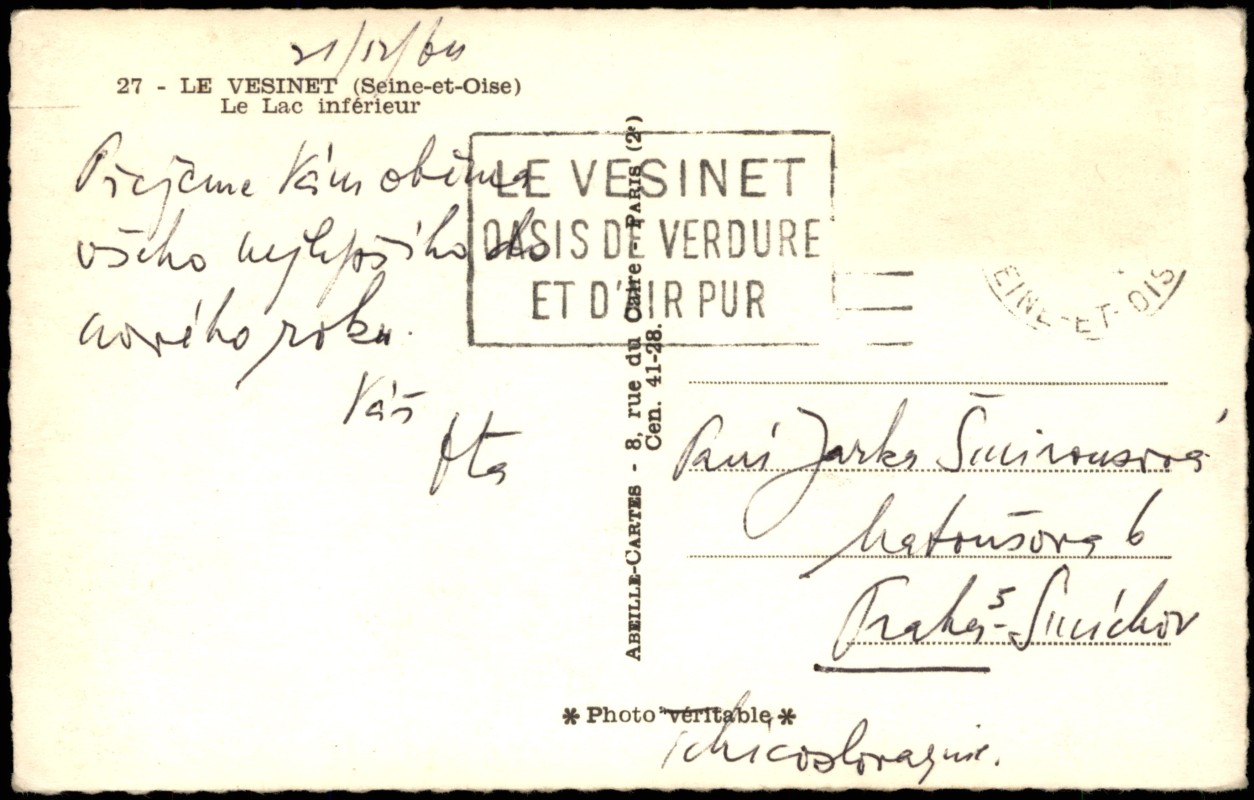 21/12/60
27 - LE VESINET (Seine-et-Oise)
Le Lac inférieur
Přejeme Vám oběma
všeho nejlepšího do
nového roku.
Váš
Ota
LE VESINET
OASIS DE VERDURE
ET D'AIR PUR
EINE-ET-OIS
ABEILLE-CARTES - 8, rue du Caire - PARIS (2e)
Cen. 41-28.
Paní Jarka
Matoušova 6
Praha 5 - Smíchov
* Photo véritable *
Tchécoslovaquie.